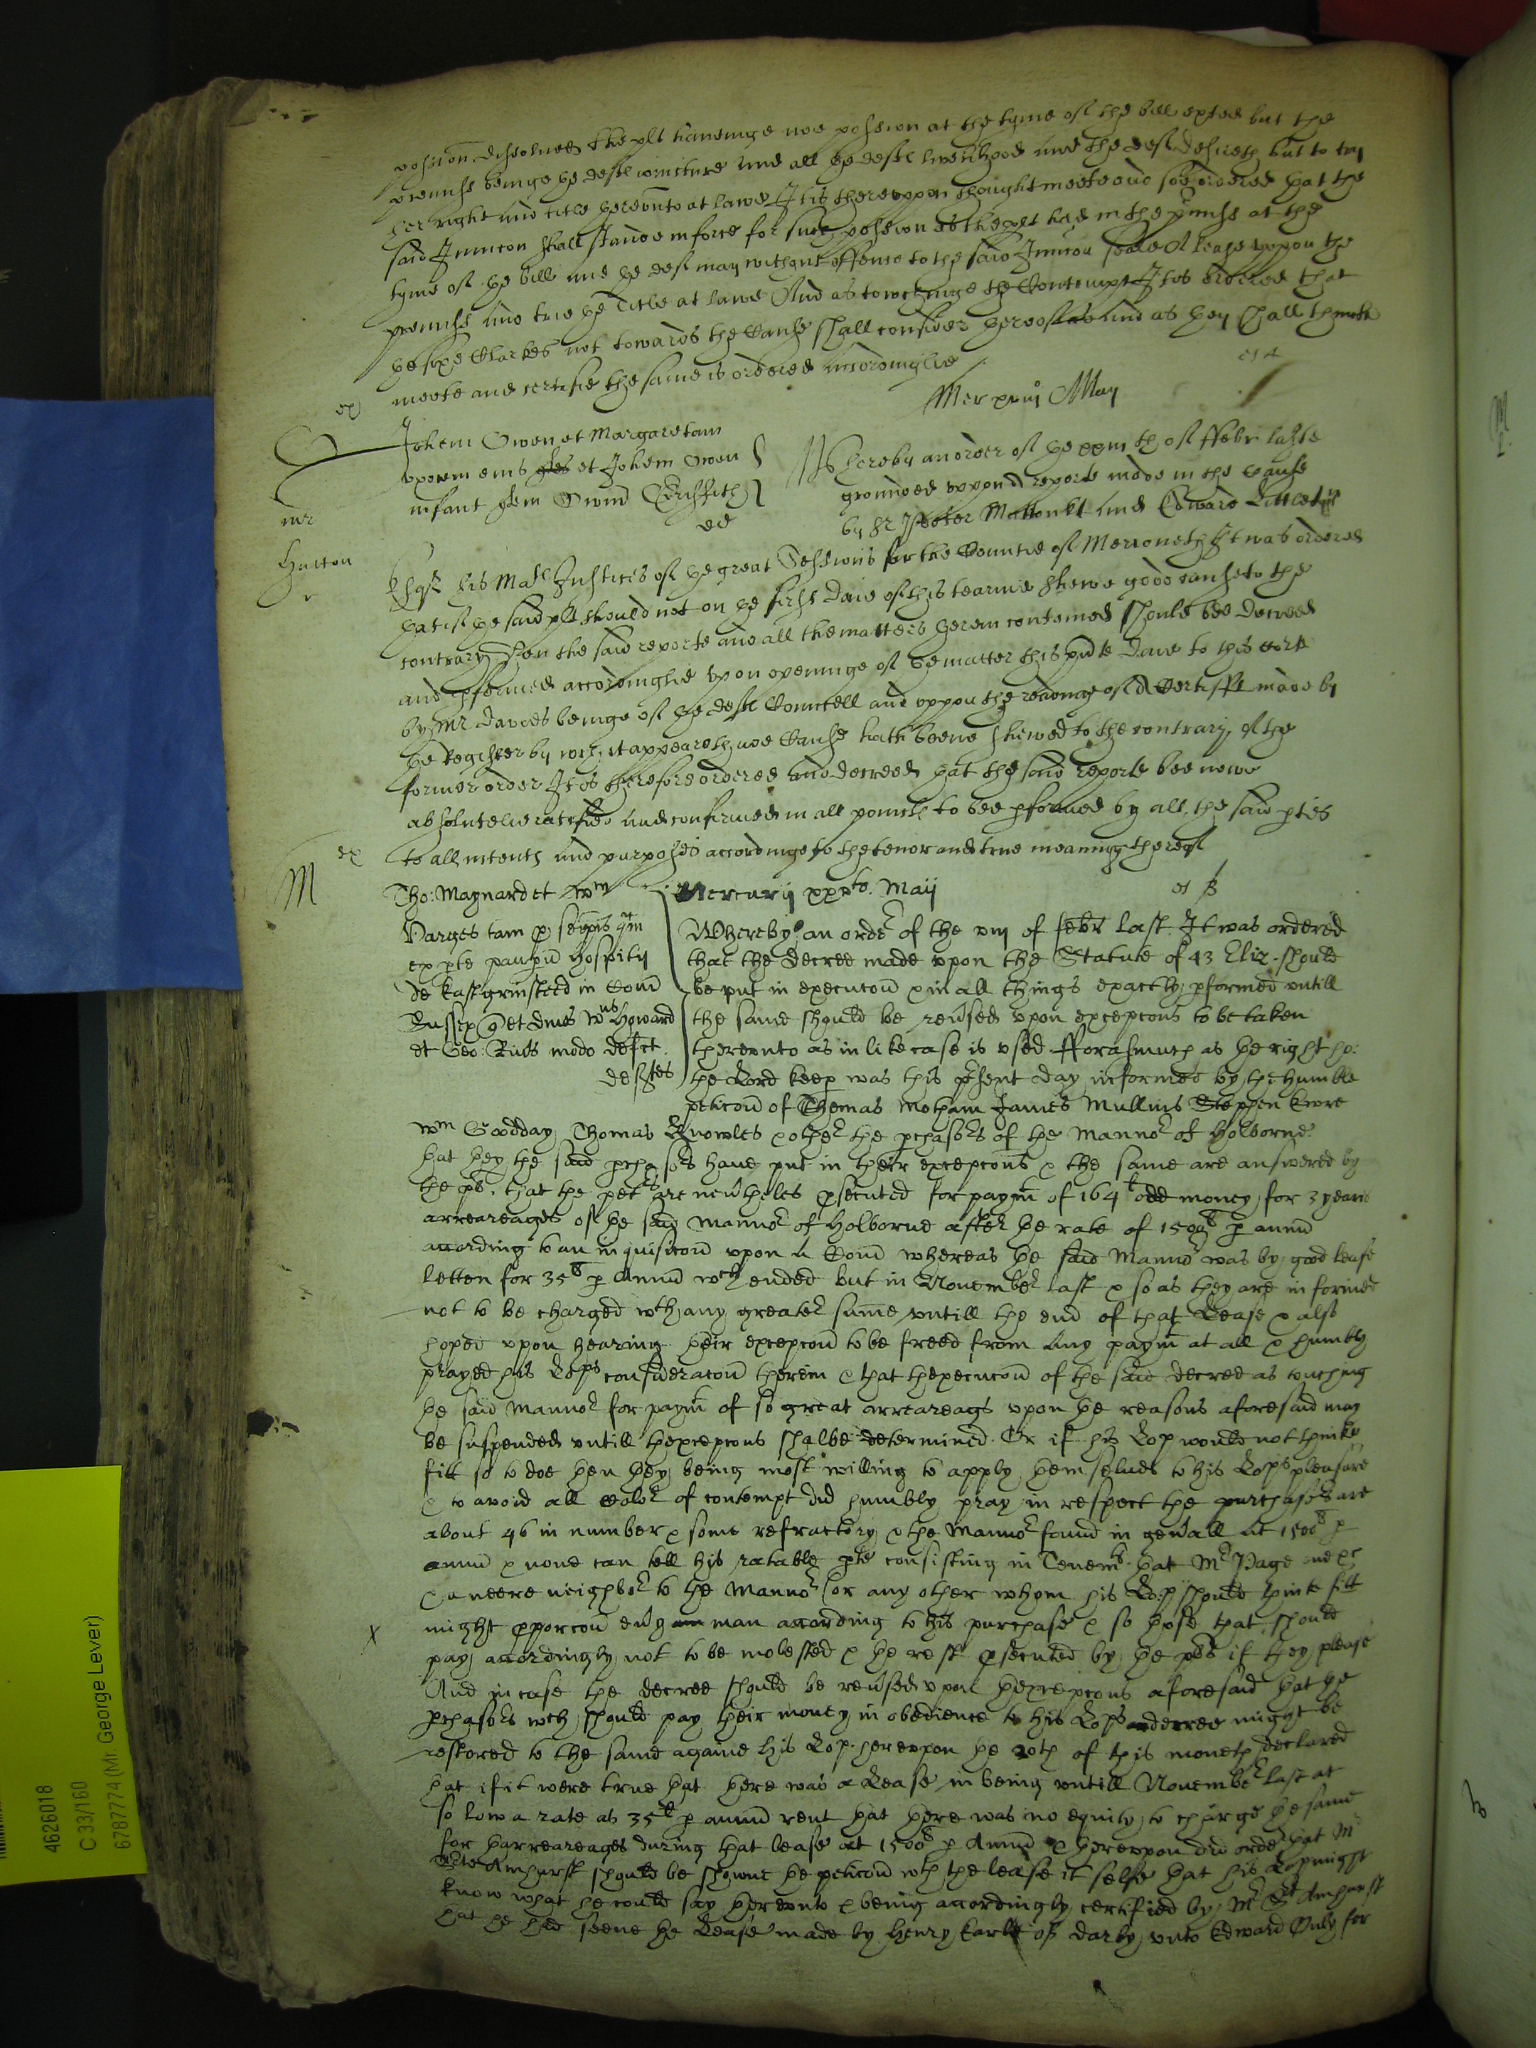 possion dissolved the plt haveinge noe possion at the tyme of the bill exted but the
premiss beinge the deftes ioincture and all the deftes livelihood and the deft desireth but to try
her right and title thereunto at lawe It is thereuppon thought meete and soe ordered that the
said Iniuncon shall stande in force for such possion as the plt had in the prmiss at the
tyme of the bill and the deft may without offence to the said Iniuncon seale A lease uppon the
premiss and trie the Title at lawe And as towchinge the Contempt It is ordered that
the sixe Clarkes not towards the Cause shall consider thereof and as they shall thincke
meete and certifie the same is ordered accordinglie
Mer xxiij May
Johem Owen et Margaretam
uxorem eius et Johem Owen
infant quer Owin Griffith
def
mr
Hatton
Whereby an order of the xxiij th of Febr laste
grounded uppon A reporte made in the Cause
by Sr Peeter Mutton kt and Edward Littleton
Esqr his Mats Justices of the great Sessions for the Countie of Merioneth It was ordered
that if the said plt should not on the first Daie of this tearme shewe good cause to the
contrary Then the said reporte and all the matters therein conteined should bee decreed
and pformed accordinglie upon openinge of the matter this pnte Daie to this Corte
by Mr Davies beinge of the defts Councell and uppon the readinge of A Certifft made by
the Register by wch it appeareth noe Cause hath beene shewed to the contrary of the
former order It is therefore ordered and decreed that the said reporte bee nowe
absolutelie ratified and confirmed in all points to bee pformed by all the said pties
to all intents and purposes accordinge to the tenor and true meaning thereof
M
Tho: Magnard et Wm
Parges tam p seipis qm
ex pte paupu Hospitij
de Eastgrinsteed in Com
Sussex q et dnus Wus Howard
et Geo: Rivs modo defct
deftes
Mercurij xxxto Maij
Whereby an ordr of the viij of febr last It was ordered
that the decree made upon the Statute of 43 Eliz should
be put in execucon & in all things exactly pformed untill
the same should be revised upon excepcons to be taken
thereunto as in like case is used fforasmuch as the right ho:
the Lord keepr was this psent day informed by the humble
peticon of Thomas Motham James Mullins Stephen
Wm Goodday Thomas Knowles & other the pchasors of the Mannor of Holborne
that they the said pchasors have put in their excepcons & the same are answered by
the pts, that the petrs are nevtheles psecuted for paymt of 164l odd money for 3 yeares
arreareages of the said Mannor of Holborne after the rate of 1500l p annu
according to an inquisicon upon a Comn whereas the said Mannor was by good lease
letten for 35l p Annu wch ended but in November last & so as they are informed
not to be charged wth any greater sume untill the end of that Lease & also
hoped upon hearing their excepcon to be freed from any paymt at all & humbly
prayed his Lops consideracon therein & that thexecucon of the said decree as touching
the said Mannor for paymt of so great arreareags upon the reasons aforesaid may
be suspended untill thexcepcons shalbe determined. Or if his Lop would not thinke
fitt so to doe then they being most willing to apply themselues to his Lops pleasure
& to avoid all color of contempt did humbly pray in respect the purchasers are
about 46 in number & some refractory & the Mannor found in genall at 1500l p
annu & none can tell his ratable pte consisting in Tenemts that Mr Page one &c
& a neere neighbor to the Mannor (or any other whom his Lop should thinke fitt
might pporcon evy man according to his purchase & so those that should
pay accordingly not to be molested & the rest psecuted by the pts if they please
And in case the decree should be revised upon thexcepcons aforesaid that the
pchasors wch should pay their money in obedience to his Lops decree might be
restored to the same againe his Lop hereupon the 20th of this moneth declared
that if it were true that there was a Lease in being untill November last at
so low a rate as 35l p annu rent that there was no equity to charge the same
for tharreareages during that lease at 1500l p Annu & thereupon did order that Mr
Amhurst should be shewne the peticon wth the lease it selfe that his Lop might
know what he could say thereunto & being accordingly certified by Mr Amhurst
that he had seene the Lease made by Henry Earle of Darby unto Edward Only for
4626018
C 33/160
6787774 (Mr. George Lever)